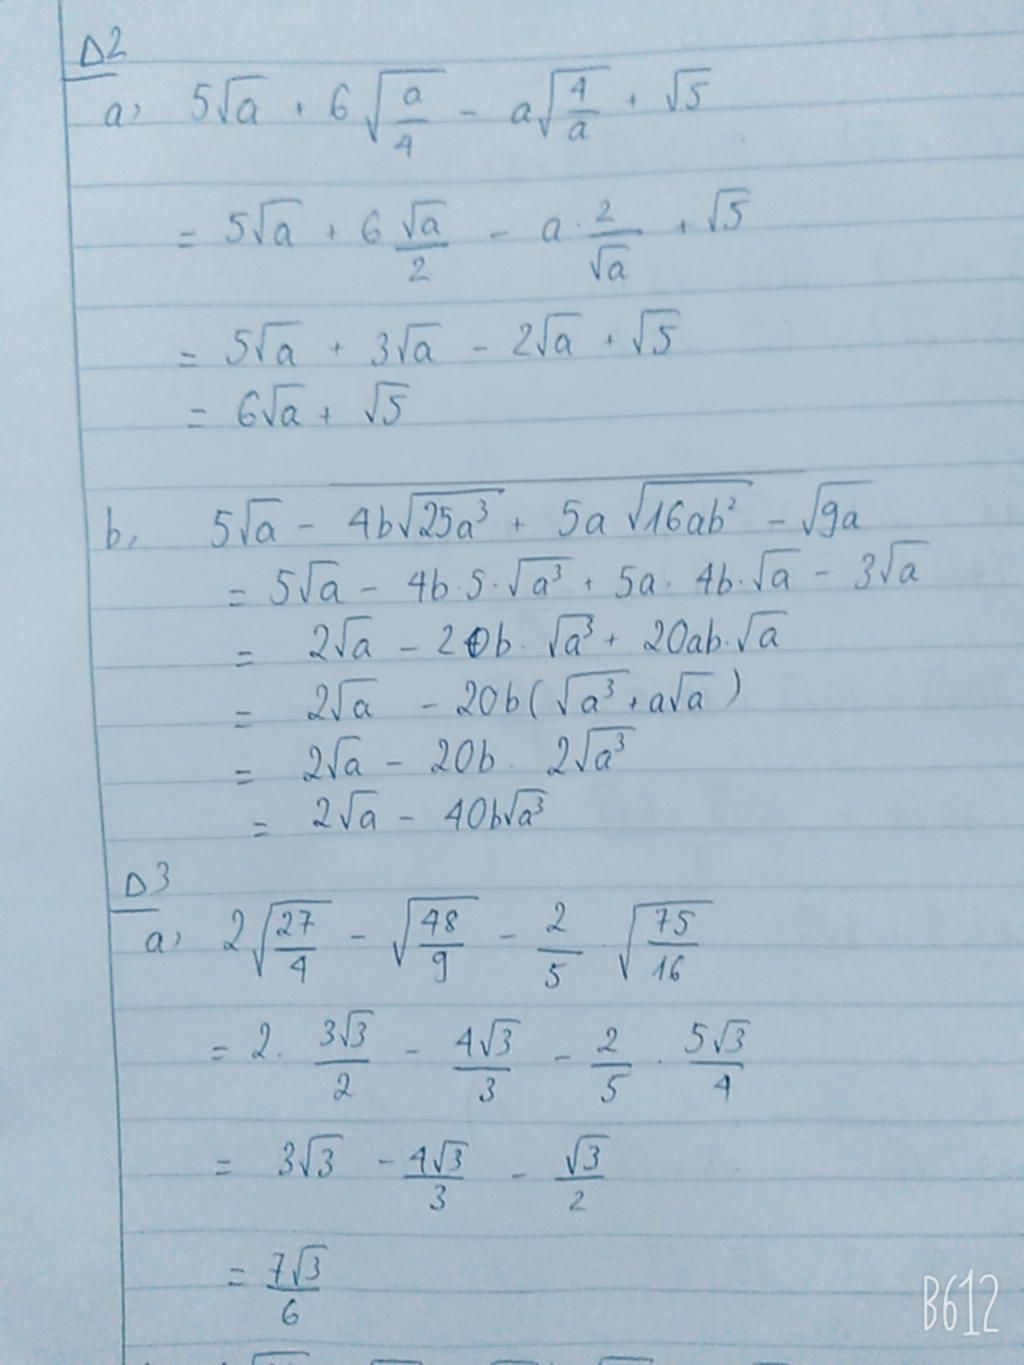 Δ2
a, 5√a + 6√(a/4) - a√(4/a) + √5
= 5√a + 6 √a/2 - a · 2/√a + √5
= 5√a + 3√a - 2√a + √5
= 6√a + √5
b, 5√a - 4b√(25a³) + 5a √(16ab²) - √(9a)
= 5√a - 4b·5·√(a³) + 5a · 4b·√a - 3√a
= 2√a - 20b · √(a³) + 20ab·√a
= 2√a - 20b(√(a³) + a√a)
= 2√a - 20b · 2√(a³)
= 2√a - 40b√(a³)
Δ3
a, 2√(27/4) - √(48/9) - 2/5 · √(75/16)
= 2 · 3√3/2 - 4√3/3 - 2/5 · 5√3/4
= 3√3 - 4√3/3 - √3/2
= 7√3/6
B612